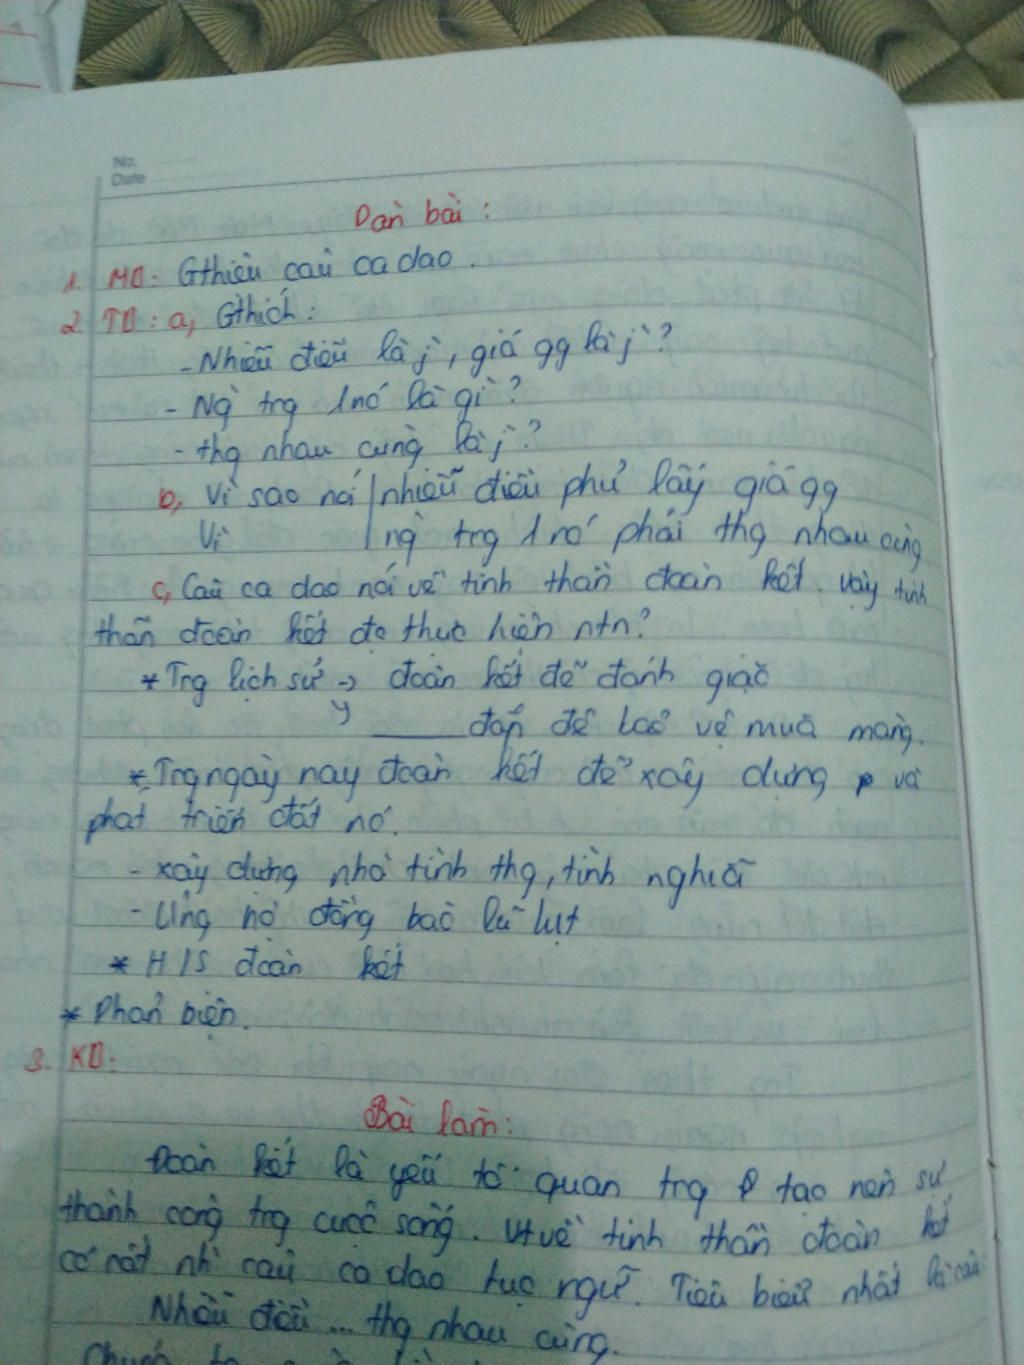 No.
Date
Dàn bài :
1. MB: Gthiệu câu ca dao.
2. TB: a, Gthích:
- Nhiễu điều là j`, giá gg là j`?
- Ng` trg 1 nc' là gì?
- thg nhau cùng là j`?
b, Vì sao nói | nhiễu điều phủ lấy giá gg
Vì | ng` trg 1 nc' phải thg nhau cùng
c, Câu ca dao nói về tinh thần đoàn kết. Vậy tinh
thần đoàn kết đc thực hiện ntn?
* Trg lịch sử -> đoàn kết để đánh giặc
đắp đê bảo vệ mùa màng.
* Trg ngày nay đoàn kết để xây dựng và
phát triển đất nc'.
- xây dựng nhà tình thg, tình nghĩa
- Ủng hộ đồng bào lũ lụt
* H/S đoàn kết
* Phản biện.
3. KB:
Bài làm:
Đoàn kết là yếu tố quan trg tạo nên sự
thành công trg cuộc sống. Vt về tinh thần đoàn kết
có rất nh` câu ca dao tục ngữ. Tiêu biểu nhất là câu
Nhiễu điều ... thg nhau cùng.
Chúng ta